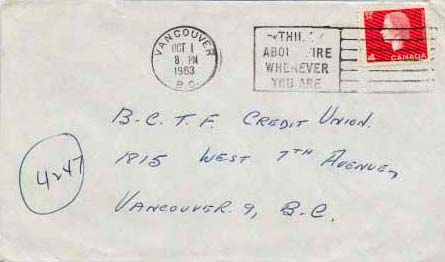 VANCOUVER
OCT 1
8 PM
1963
B.C.
WHEREVER
YOU ARE
4
CANADA
B.C.T.F. CREDIT UNION.
1815 WEST 7TH AVENUE,
VANCOUVER 9, B.C.
4247